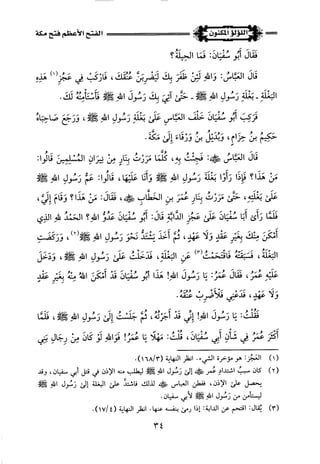 الفتح الأعظم فتح مكة
اللؤلؤ المكنون
فَقَالَ أَبُو سُفْيَانَ: فَمَا الْحِيلَةُ؟
قَالَ الْعَبَّاسُ: وَاللهِ لَئِنْ ظَفَرَ بِكَ لَيَضْرِبَنَّ عُنُقَكَ، فَارْكَبْ فِي عَجُزِ(١) هَذِهِ
الْبَغْلَةِ ـ بَغْلَةِ رَسُولِ اللهِ ﷺ ـ حَتَّى آتِيَ بِكَ رَسُولَ اللهِ ﷺ فَأَسْتَأْمِنَهُ لَكَ.
فَرَكِبَ أَبُو سُفْيَانَ خَلْفَ الْعَبَّاسِ عَلَى بَغْلَةِ رَسُولِ اللهِ ﷺ، وَرَجَعَ صَاحِبَاهُ
حَكِيمُ بْنُ حِزَامٍ، وَبُدَيْلُ بْنُ وَرْقَاءَ إِلَى مَكَّةَ.
قَالَ الْعَبَّاسُ ﵁: فَجِئْتُ بِهِ، كُلَّمَا مَرَرْتُ بِنَارٍ مِنْ نِيرَانِ الْمُسْلِمِينَ قَالُوا:
مَنْ هَذَا؟ فَإِذَا رَأَوْا بَغْلَةَ رَسُولِ اللهِ ﷺ وَأَنَا عَلَيْهَا، قَالُوا: عَمُّ رَسُولِ اللهِ ﷺ
عَلَى بَغْلَتِهِ، حَتَّى مَرَرْتُ بِنَارِ عُمَرَ بْنِ الْخَطَّابِ ﵁، فَقَالَ: مَنْ هَذَا؟ وَقَامَ إِلَيَّ،
فَلَمَّا رَأَى أَبَا سُفْيَانَ عَلَى عَجُزِ الدَّابَّةِ قَالَ: أَبُو سُفْيَانَ عَدُوُّ اللهِ؟ الْحَمْدُ للهِ الذِي
أَمْكَنَ مِنْكَ بِغَيْرِ عَقْدٍ وَلَا عَهْدٍ، ثُمَّ أَخَذَ يَشْتَدُّ نَحْوَ رَسُولِ اللهِ ﷺ(٢)، وَرَكَضَتِ
الْبَغْلَةُ، فَسَبَقَتْهُ فَاقْتَحَمْتُ(٣) عَنِ الْبَغْلَةِ، فَدَخَلْتُ عَلَى رَسُولِ اللهِ ﷺ، وَدَخَلَ
عَلَيْهِ عُمَرُ، فَقَالَ عُمَرُ: يَا رَسُولَ اللهِ! هَذَا أَبُو سُفْيَانَ قَدْ أَمْكَنَ اللهُ مِنْهُ بِغَيْرِ عَقْدٍ
وَلَا عَهْدٍ، فَدَعْنِي فَلِأَضْرِبَ عُنُقَهُ.
فَقُلْتُ: يَا رَسُولَ اللهِ! إِنِّي قَدْ أَجَرْتُهُ، ثُمَّ جَلَسْتُ إِلَى رَسُولِ اللهِ ﷺ، فَلَمَّا
أَكْثَرَ عُمَرُ فِي شَأْنِ أَبِي سُفْيَانَ، قُلْتُ: مَهْلًا يَا عُمَرُ! فَوَاللهِ لَوْ كَانَ مِنْ رِجَالِ بَنِي
(١) العَجُز: هو مؤخرة الشيء. انظر النهاية (١٦٨/٣).
(٢) كان سبب اشتداد عُمر ﵁ إلى رَسُولِ اللهِ ﷺ ليطلب منه الإذن في قتل أبي سفيان، وقد
يحصل على الإذن، ففطن العباس ﵁ لذلك فاشتد على البغلة إلى رَسُولِ اللهِ ﷺ
ليستأمن من رَسُولِ اللهِ ﷺ لأبي سفيان.
(٣) يُقال: اقتحم عن الدابة: إذا رمى بنفسه عنها. انظر النهاية (١٧/٤).
٣٤